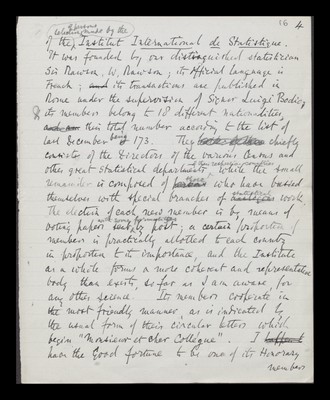 16 4
& persons selected made by the
of the Institut International de Statistique.
It was founded by our distinguished statistician
Sir Rawson, W, Rawson; its official language is
French; and its transactions are published in
Rome under the supervision of Signor Luigi Bodio,
& its members belong to 18 different nationalities,
their total number according to the list of
last December being 173. They chiefly
consists of the Directors of the various Census and
other great Statistical departments of their respective countries, while the small
remainder is composed of those who have busied
themselves with special branches of statistical work.
The election of each new member is by means of
voting papers sent by post; a certain proportion of
members is practically allotted to each country
in proportion to its importance, and the Institute
as a whole forms a more coherent and representative
body than exists, so far as I am aware, for
any other science. Its members cooperate in
the most friendly manner, as is indicated by
the usual form of their circular letters which
begin "Monsieur et cher Collègue". I
have the Good fortune to be one of its Honorary
members